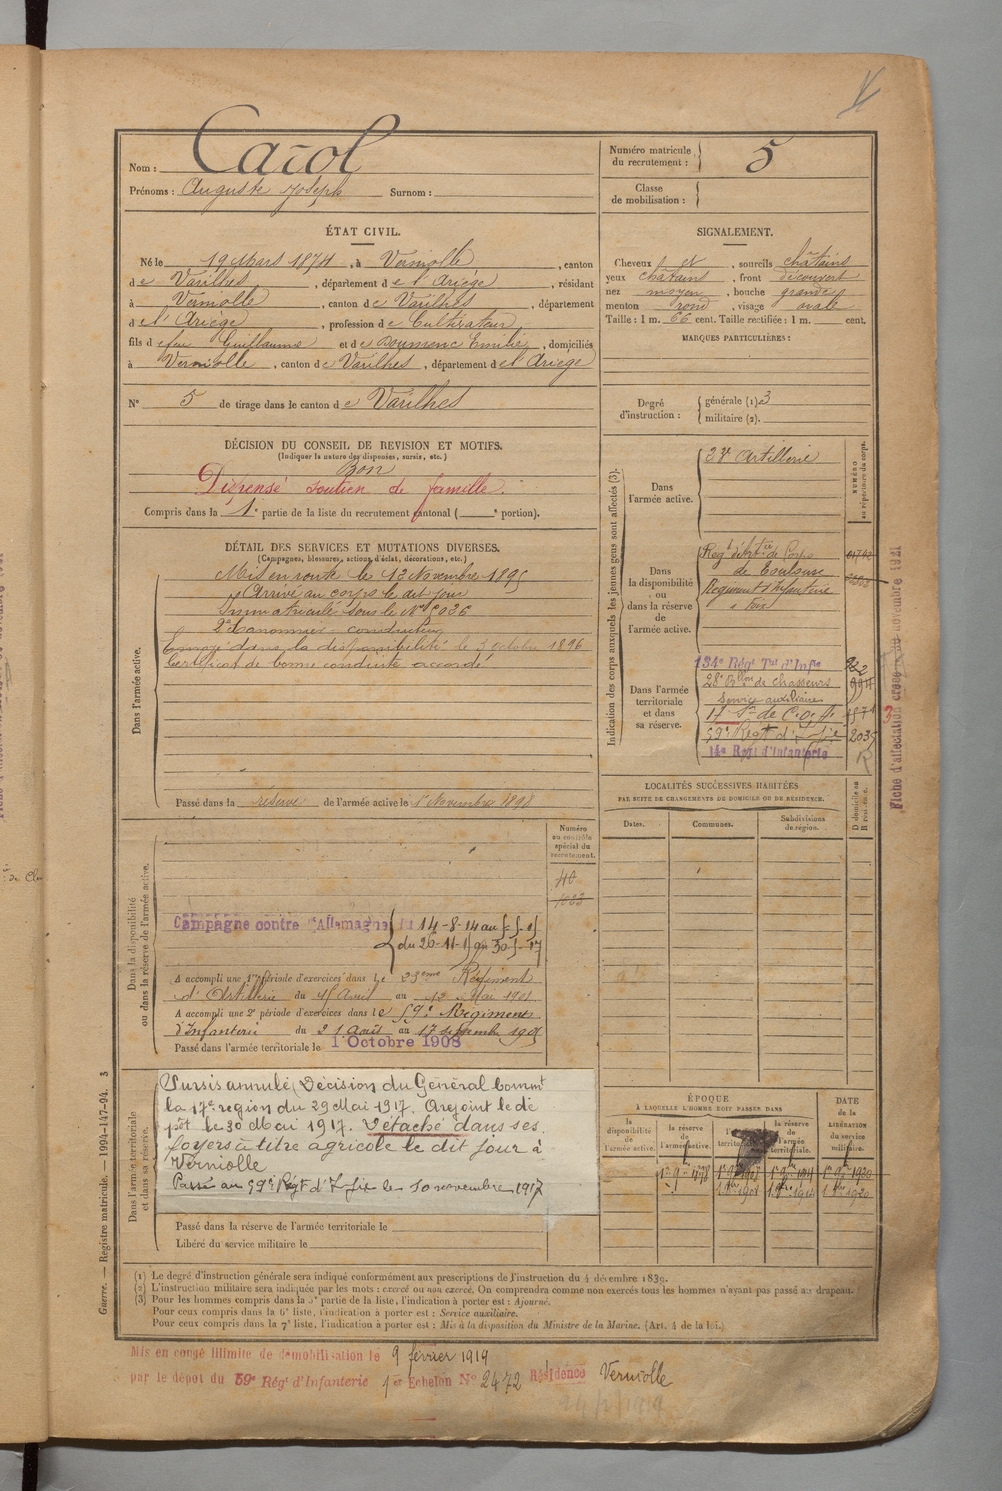 Nom : Carol
Prénoms : Auguste Joseph Surnom :
Numéro matricule du recrutement : 5
Classe de mobilisation :
ÉTAT CIVIL.
Né le 19 Mars 1874, à Verniolle, canton
de Varilhes, département de l'Ariège, résidant
à Verniolle, canton de Varilhes, département
de l'Ariège, profession de Cultivateur
fils de feu Guillaume et de Doumenc Emilie, domiciliés
à Verniolle, canton de Varilhes, département de l'Ariège
N° 5 de tirage dans le canton de Varilhes
SIGNALEMENT.
Cheveux et, sourcils châtains
yeux châtains, front découvert
nez moyen, bouche grande
menton rond, visage ovale
Taille : 1 m. 66 cent. Taille rectifiée : 1 m. cent.
MARQUES PARTICULIÈRES :
Degré d'instruction : générale (1) 3
militaire (2).
DÉCISION DU CONSEIL DE REVISION ET MOTIFS.
(Indiquer la nature des dispenses, sursis, etc.)
Bon
Dispensé soutien de famille.
Compris dans la 1e partie de la liste du recrutement cantonal ( e portion).
DÉTAIL DES SERVICES ET MUTATIONS DIVERSES.
(Campagnes, blessures, actions d'éclat, décorations, etc.)
Dans l'armée active.
Mis en route le 13 Novembre 1895
Arrivé au corps le dit jour
Immatriculé sous le N° 2036
2e Canonnier conducteur
Envoyé dans la disponibilité le 3 octobre 1896
Certificat de bonne conduite accordé
Passé dans la réserve de l'armée active le 1er Novembre 1898
Indication des corps auxquels les jeunes gens sont affectés (3).
NUMÉRO au répertoire du corps.
Dans l'armée active.
23e Artillerie
Dans la disponibilité ou dans la réserve de l'armée active.
Régt d'Artie de Corps
de Toulouse
Régiment d'Infanterie
à Foix
Dans l'armée territoriale et dans sa réserve.
134e Régt Tal d'Infie
28e Bllon de Chasseurs
Service auxiliaire
17 Son de C.O.A.
59e Régt d'Infie 2035
14e Régt d'Infanterie
Fiche d'affectation créée novembre 1921
LOCALITÉS SUCCESSIVES HABITÉES
PAR SUITE DE CHANGEMENTS DE DOMICILE OU DE RÉSIDENCE.
Dates.
Communes.
Subdivisions de région.
D domicile ou R résidence.
Dans la disponibilité ou dans la réserve de l'armée active.
Numéro au contrôle spécial du recrutement.
40
1033
Campagne contre l'Allemagne du 14-8-14 au
du 26-11-15 au 30-5-17
A accompli une 1re période d'exercices dans le 23eme Régiment
d'Artillerie du 15 Avril au 12 Mai 1901
A accompli une 2e période d'exercices dans le 59e Régiment
d'Infanterie du 21 Août au 17 septembre 1905
Passé dans l'armée territoriale le 1 Octobre 1908
Dans l'armée territoriale et dans sa réserve.
Sursis annulé (Décision du Général Commt
la 17e région du 29 Mai 1917. A rejoint le dé
pôt le 30 Mai 1917. Détaché dans ses
foyers à titre agricole le dit jour à
Verniolle
Passé au 59e Régt d'Infie le 10 novembre 1917
Passé dans la réserve de l'armée territoriale le
Libéré du service militaire le
ÉPOQUE
À LAQUELLE L'HOMME DOIT PASSER DANS
la disponibilité de l'armée active.
la réserve de l'armée active.
la réserve de l'armée territoriale.
DATE de la LIBÉRATION du service militaire.
(1) Le degré d'instruction générale sera indiqué conformément aux prescriptions de l'instruction du 4 décembre 1839.
(2) L'instruction militaire sera indiquée par les mots : exercé ou non exercé. On comprendra comme non exercés tous les hommes n'ayant pas passé au drapeau.
(3) Pour les hommes compris dans la 5e partie de la liste, l'indication à porter est : Ajourné.
Pour ceux compris dans la 6e liste, l'indication à porter est : Service auxiliaire.
Pour ceux compris dans la 7e liste, l'indication à porter est : Mis à la disposition du Ministre de la Marine. (Art. 4 de la loi.)
Guerre. — Registre matricule. — 1994-147-94. 3
Mis en congé illimité de démobilisation le 9 février 1919
par le dépot du 59e Régt d'Infanterie 1er Echelon N° 2472 Résidence Verniolle